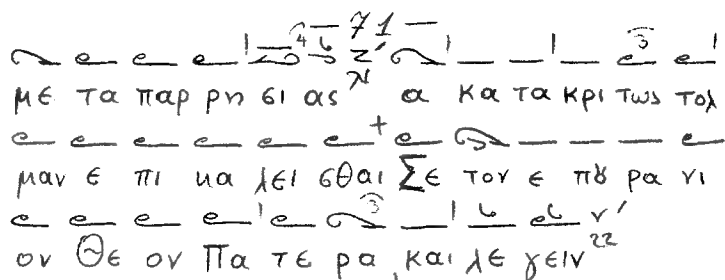 — 71 —
με τα παρ ρη σι ας α κα τα κρι τως τολ
μαν ε πι κα λει σθαι Σε τον ε πȣ ρα νι
ον Θε ον Πα τε ρα, και λε γειν